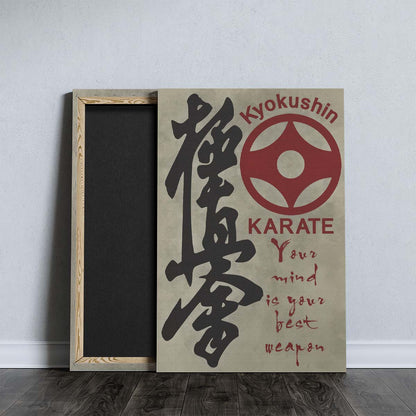 極真會
Kyokushin
KARATE
Your
mind
is your
best
weapon